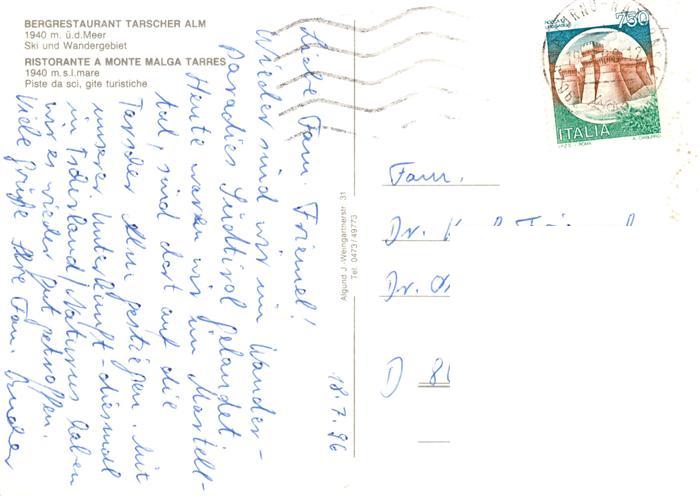 BERGRESTAURANT TARSCHER ALM
1940 m. ü.d.Meer
Ski und Wandergebiet
RISTORANTE A MONTE MALGA TARRES
1940 m s.l.mare
Piste da sci, gite turistiche
Liebe Fam. Friemel!
Wieder sind wir im Wander-
paradies Südtirol gelandet.
Heute waren wir im Martell-
tal, sind dort auf die
Tarscher Alm gestiegen. Mit
unserer Unterkunft - diesmal
in Tschirland/Naturns haben
wir es wieder gut getroffen.
Viele Grüße Ihre Fam.
18.7.96
Algund J.-Weingartnerstr. 31
Tel. 0473/49773
750
ITALIA
I.P.Z.S. - ROMA
Fam.
Dr.
Dr.
D